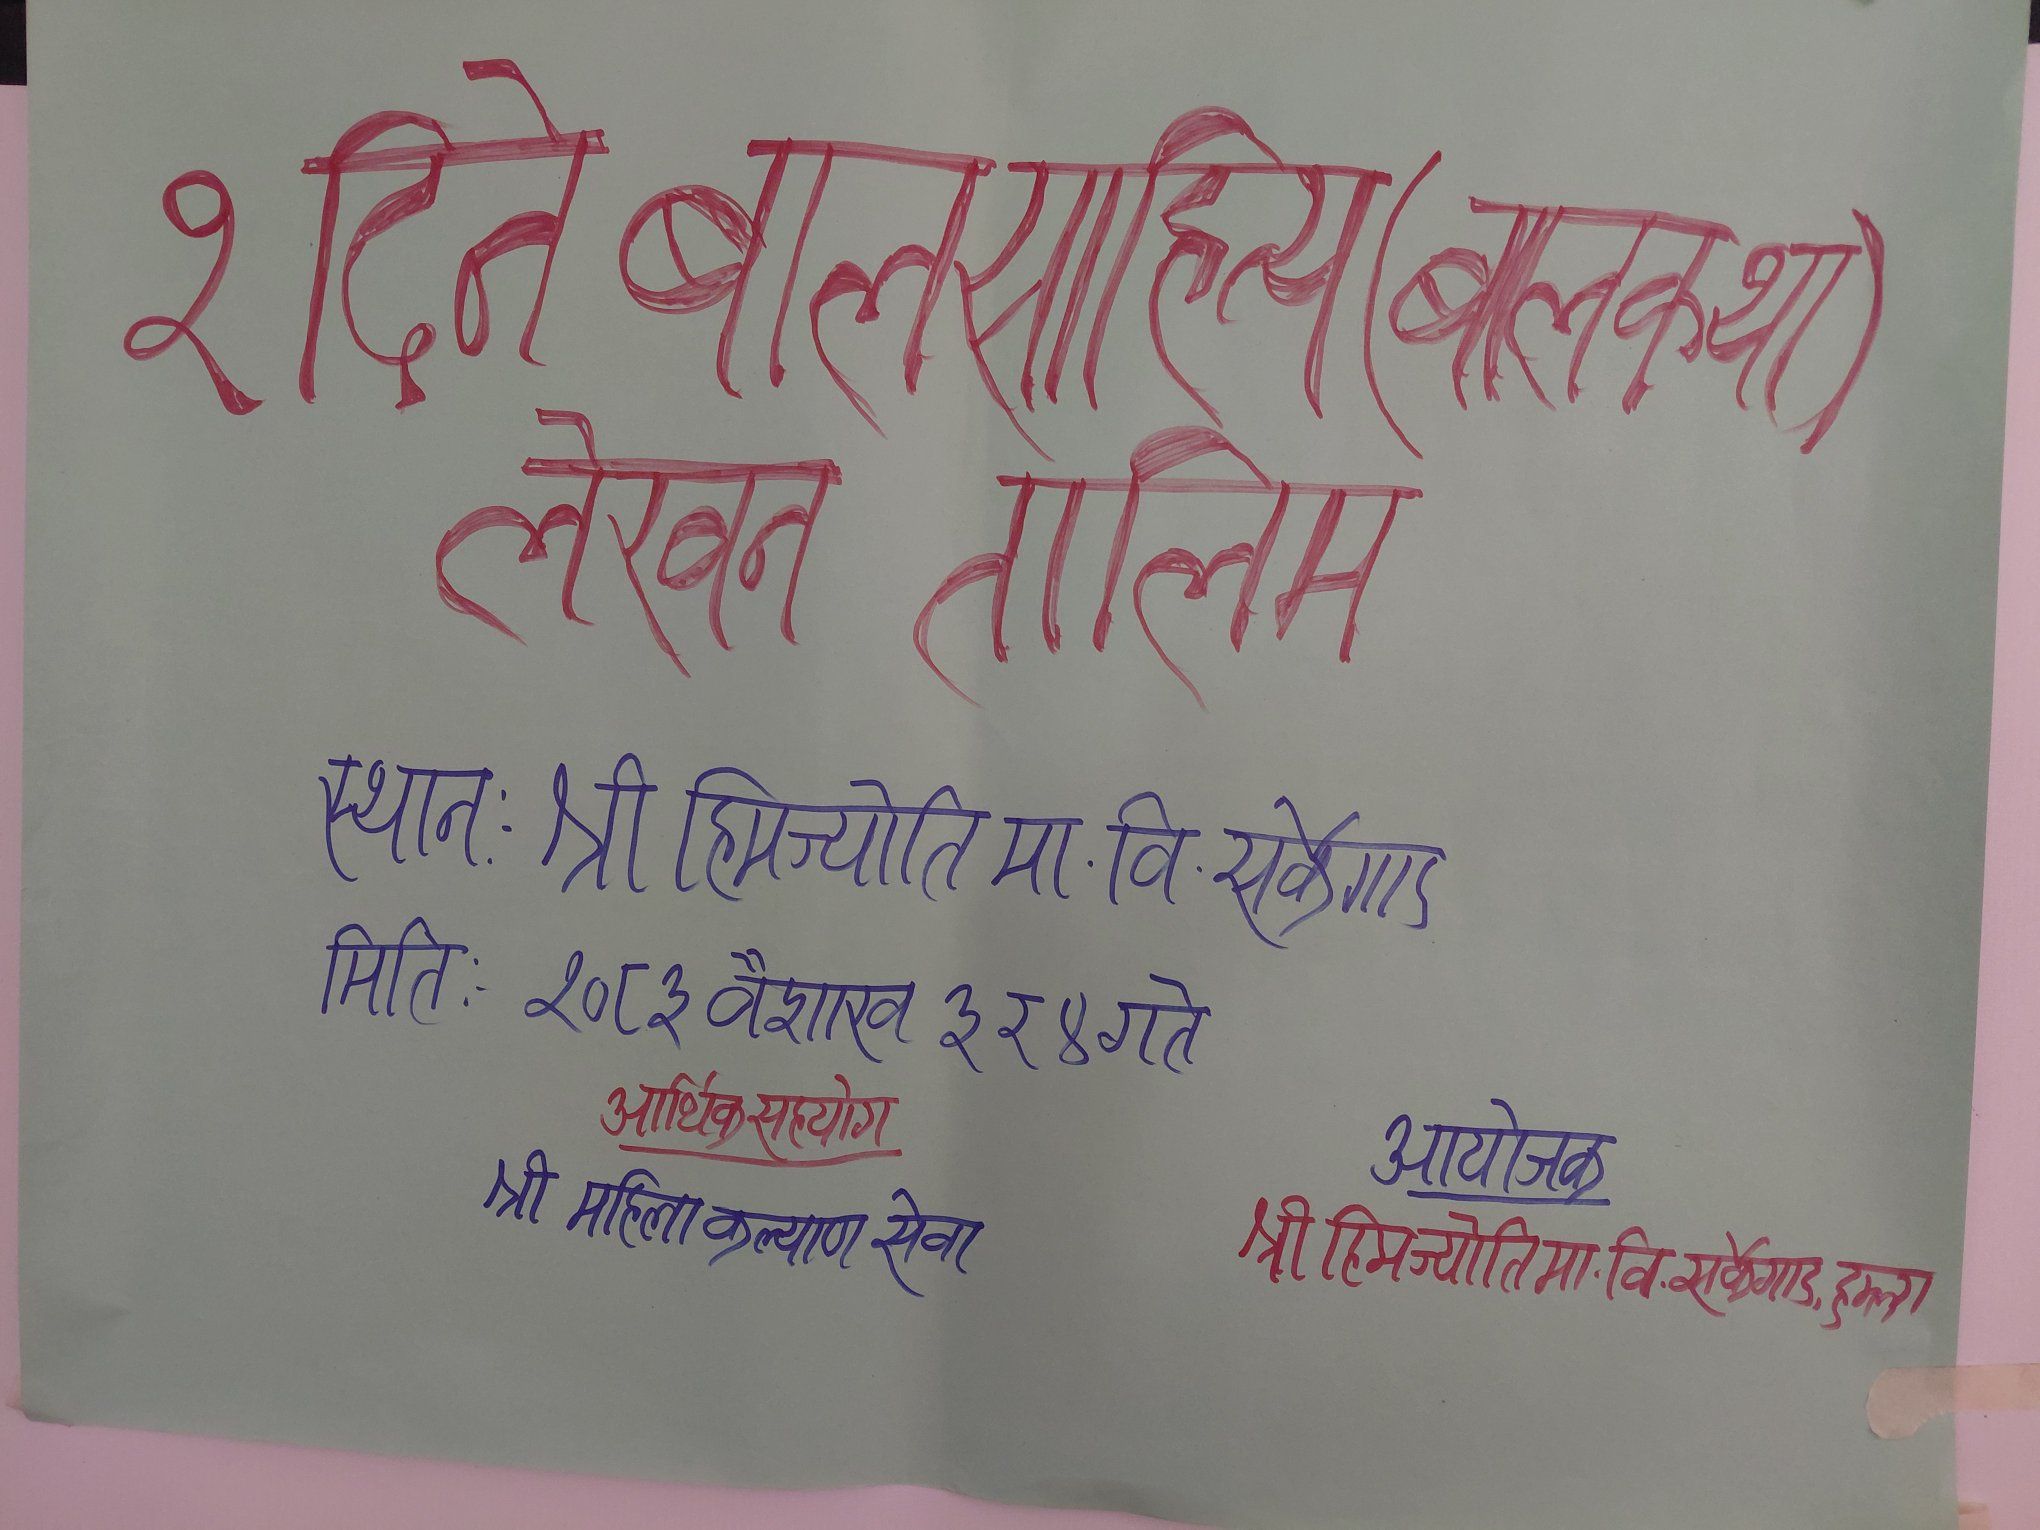 २ दिने बालसाहित्य (बालकथा)
लेखन तालिम
स्थान:- श्री हिमज्योति मा.वि. सर्केगाड
मिति:- २०८३ वैशाख ३ र ४ गते
आर्थिक सहयोग
श्री महिला कल्याण सेवा
आयोजक
श्री हिमज्योति मा.वि. सर्केगाड, हुम्ला